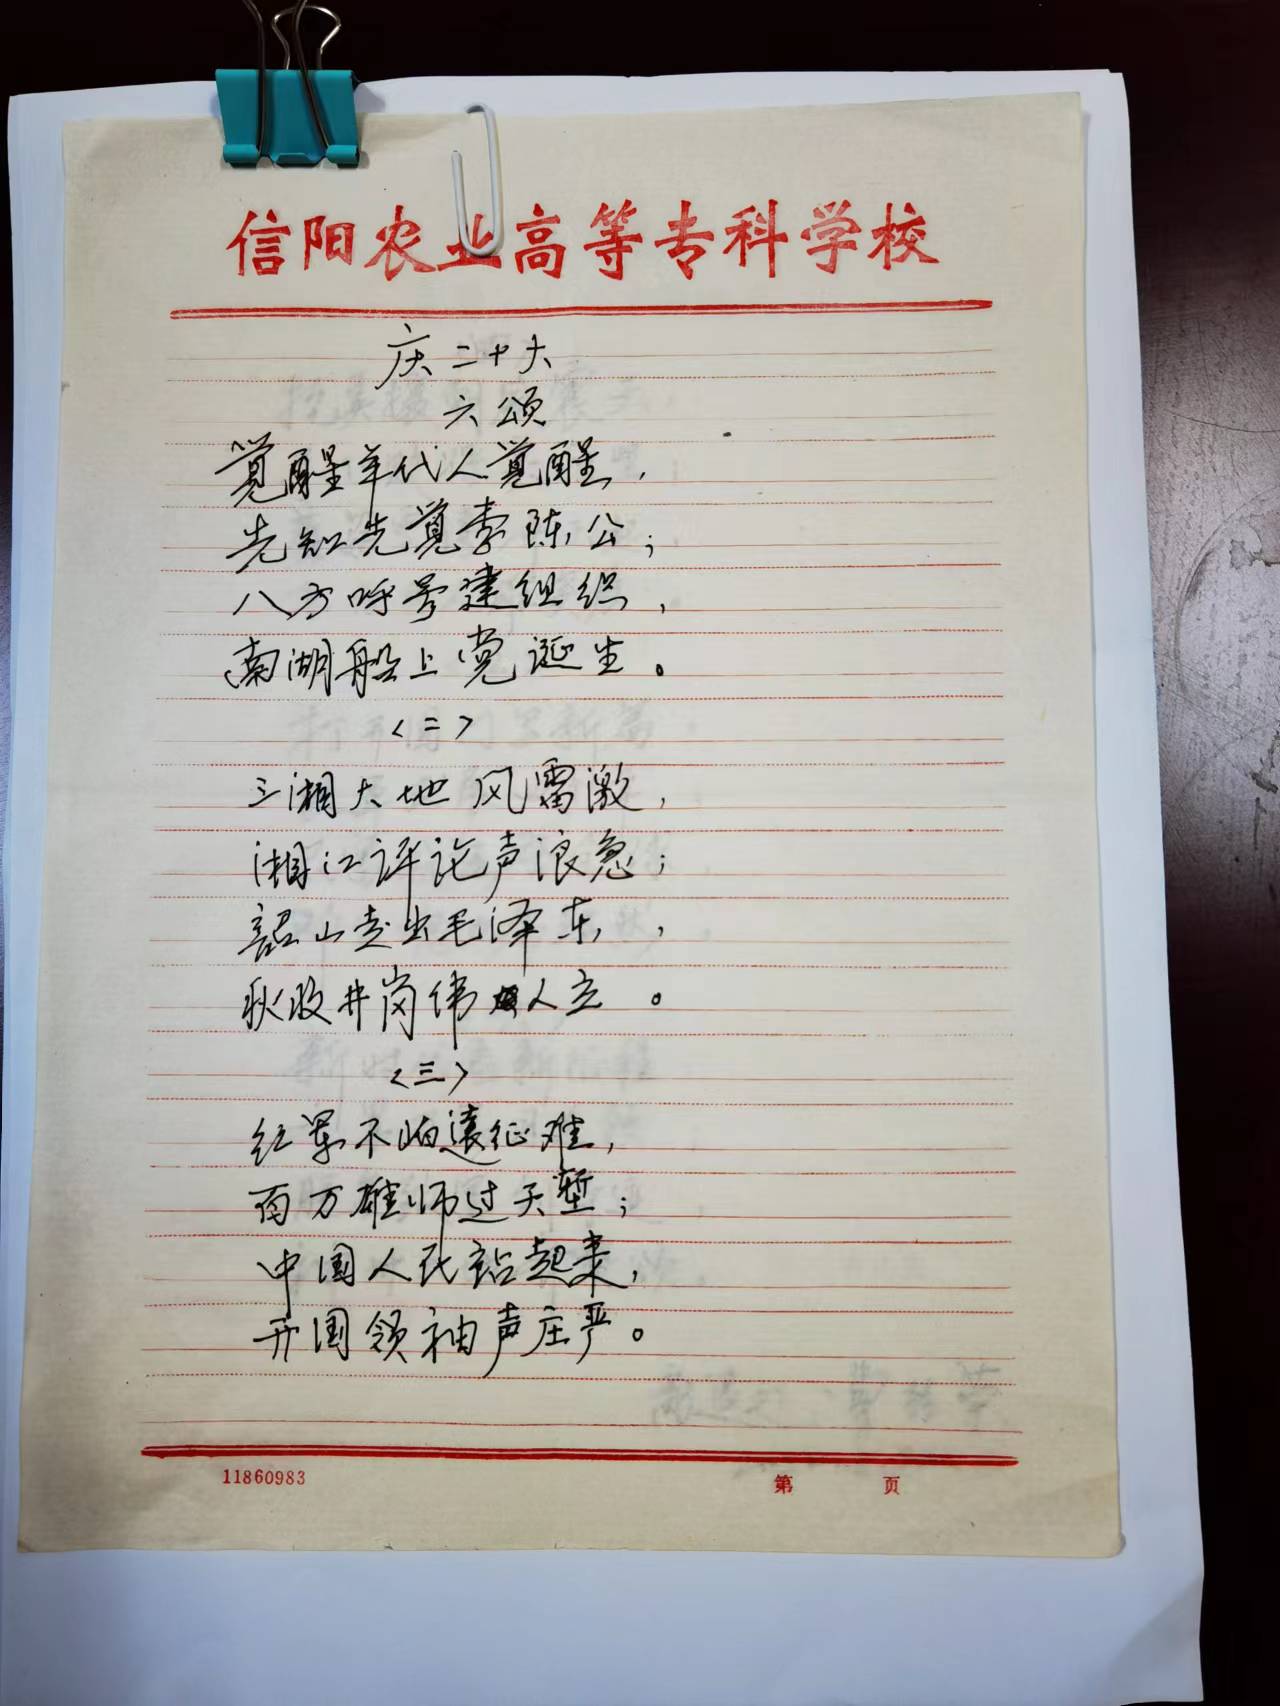 信阳农业高等专科学校
庆二十大
六颂
觉醒年代人觉醒，
先知先觉李陈公；
八方呼号建组织，
南湖船上党诞生。
<二>
三湘大地风雷激，
湘江评论声浪急；
韶山走出毛泽东，
秋收井岗伟人立。
<三>
红军不怕远征难，
百万雄师过天堑；
中国人民站起来，
开国领袖声庄严。
11860983 第 页